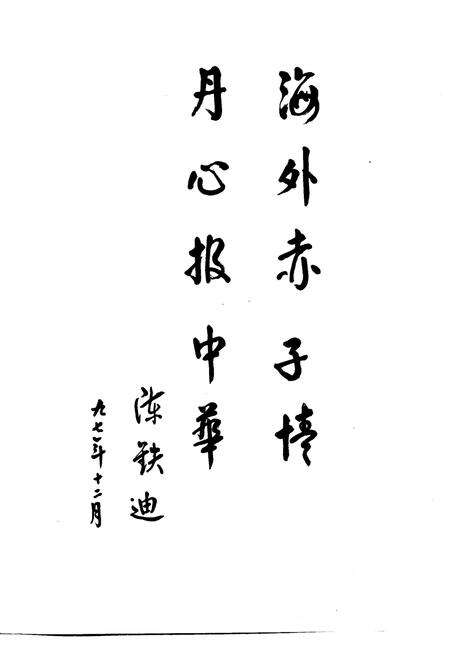 海外赤子情
丹心报中華
陈铁迪
九七年十二月